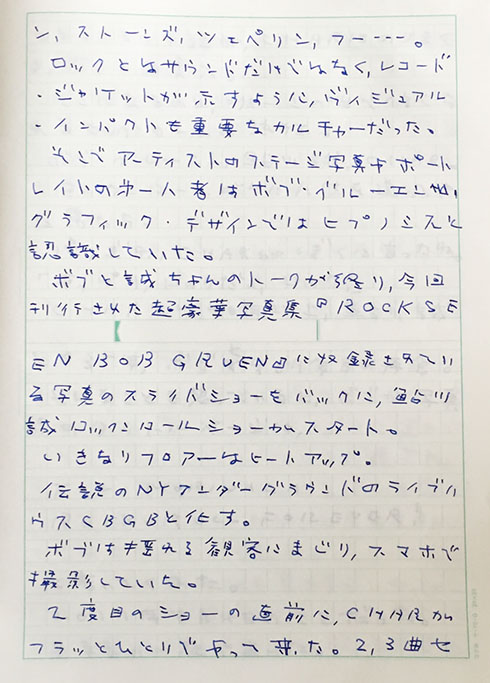 ン、ストーンズ、ツェペリン、フー……。
ロックとはサウンドだけではなく、レコード
・ジャケットが示すように、ヴィジュアル
・インパクトも重要なカルチャーだった。
そこでアーティストのステージ写真やポート
レイトの第一人者はボブ・グルーエン
グラフィック・デザインではヒプノシスと
認識していた。
ボブと誠ちゃんのトークが終り、今回
刊行された超豪華写真集『ROCK SE
EN BOB GRUEN』に収録されてい
る写真のスライドショーをバックに、鮎川
誠ロックンロールショーがスタート。
いきなりフロアーはヒートアップ。
伝説のNYアンダーグラウンドのライブハ
ウスCBGBと化す。
ボブは揺れる観客にまじり、スマホで
撮影していた。
2度目のショーの直前に、CHARが
フラッとひとりでやって来た。2,3曲セ